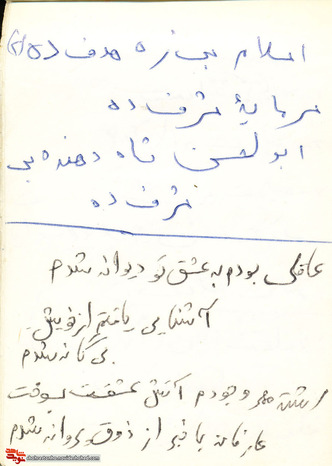 اسلام بی زه هدف ده (۲)
سرمایهٔ شرف ده
ابوالحسن شاه دهنده بی
شرف ده
عاقل بودم به عشق تو دیوانه شدم
آشنایی یافتم از خویش
بی گانه شدم
وجودم آتش عشقت بسوخت
عارفانه باخبر از ذوق پروانه شدم